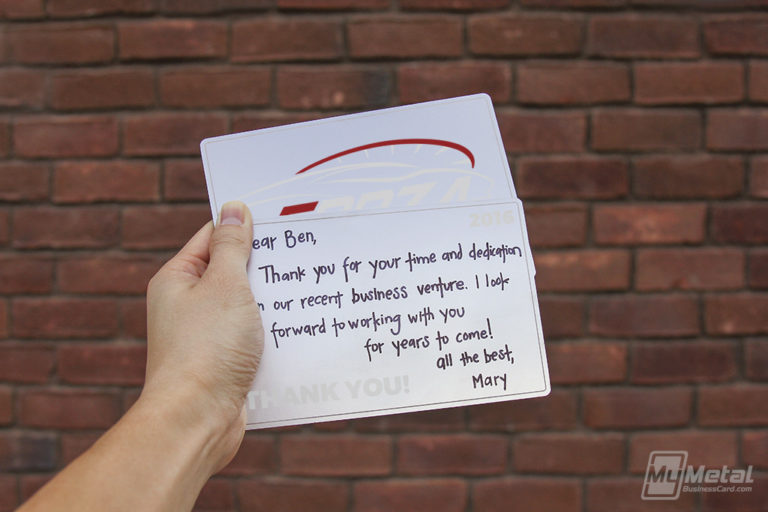 2016
ear Ben,
Thank you for your time and dedication
n our recent business venture. I look
forward to working with you
for years to come!
all the best,
Mary
THANK YOU!
MyMetal
BusinessCard.com